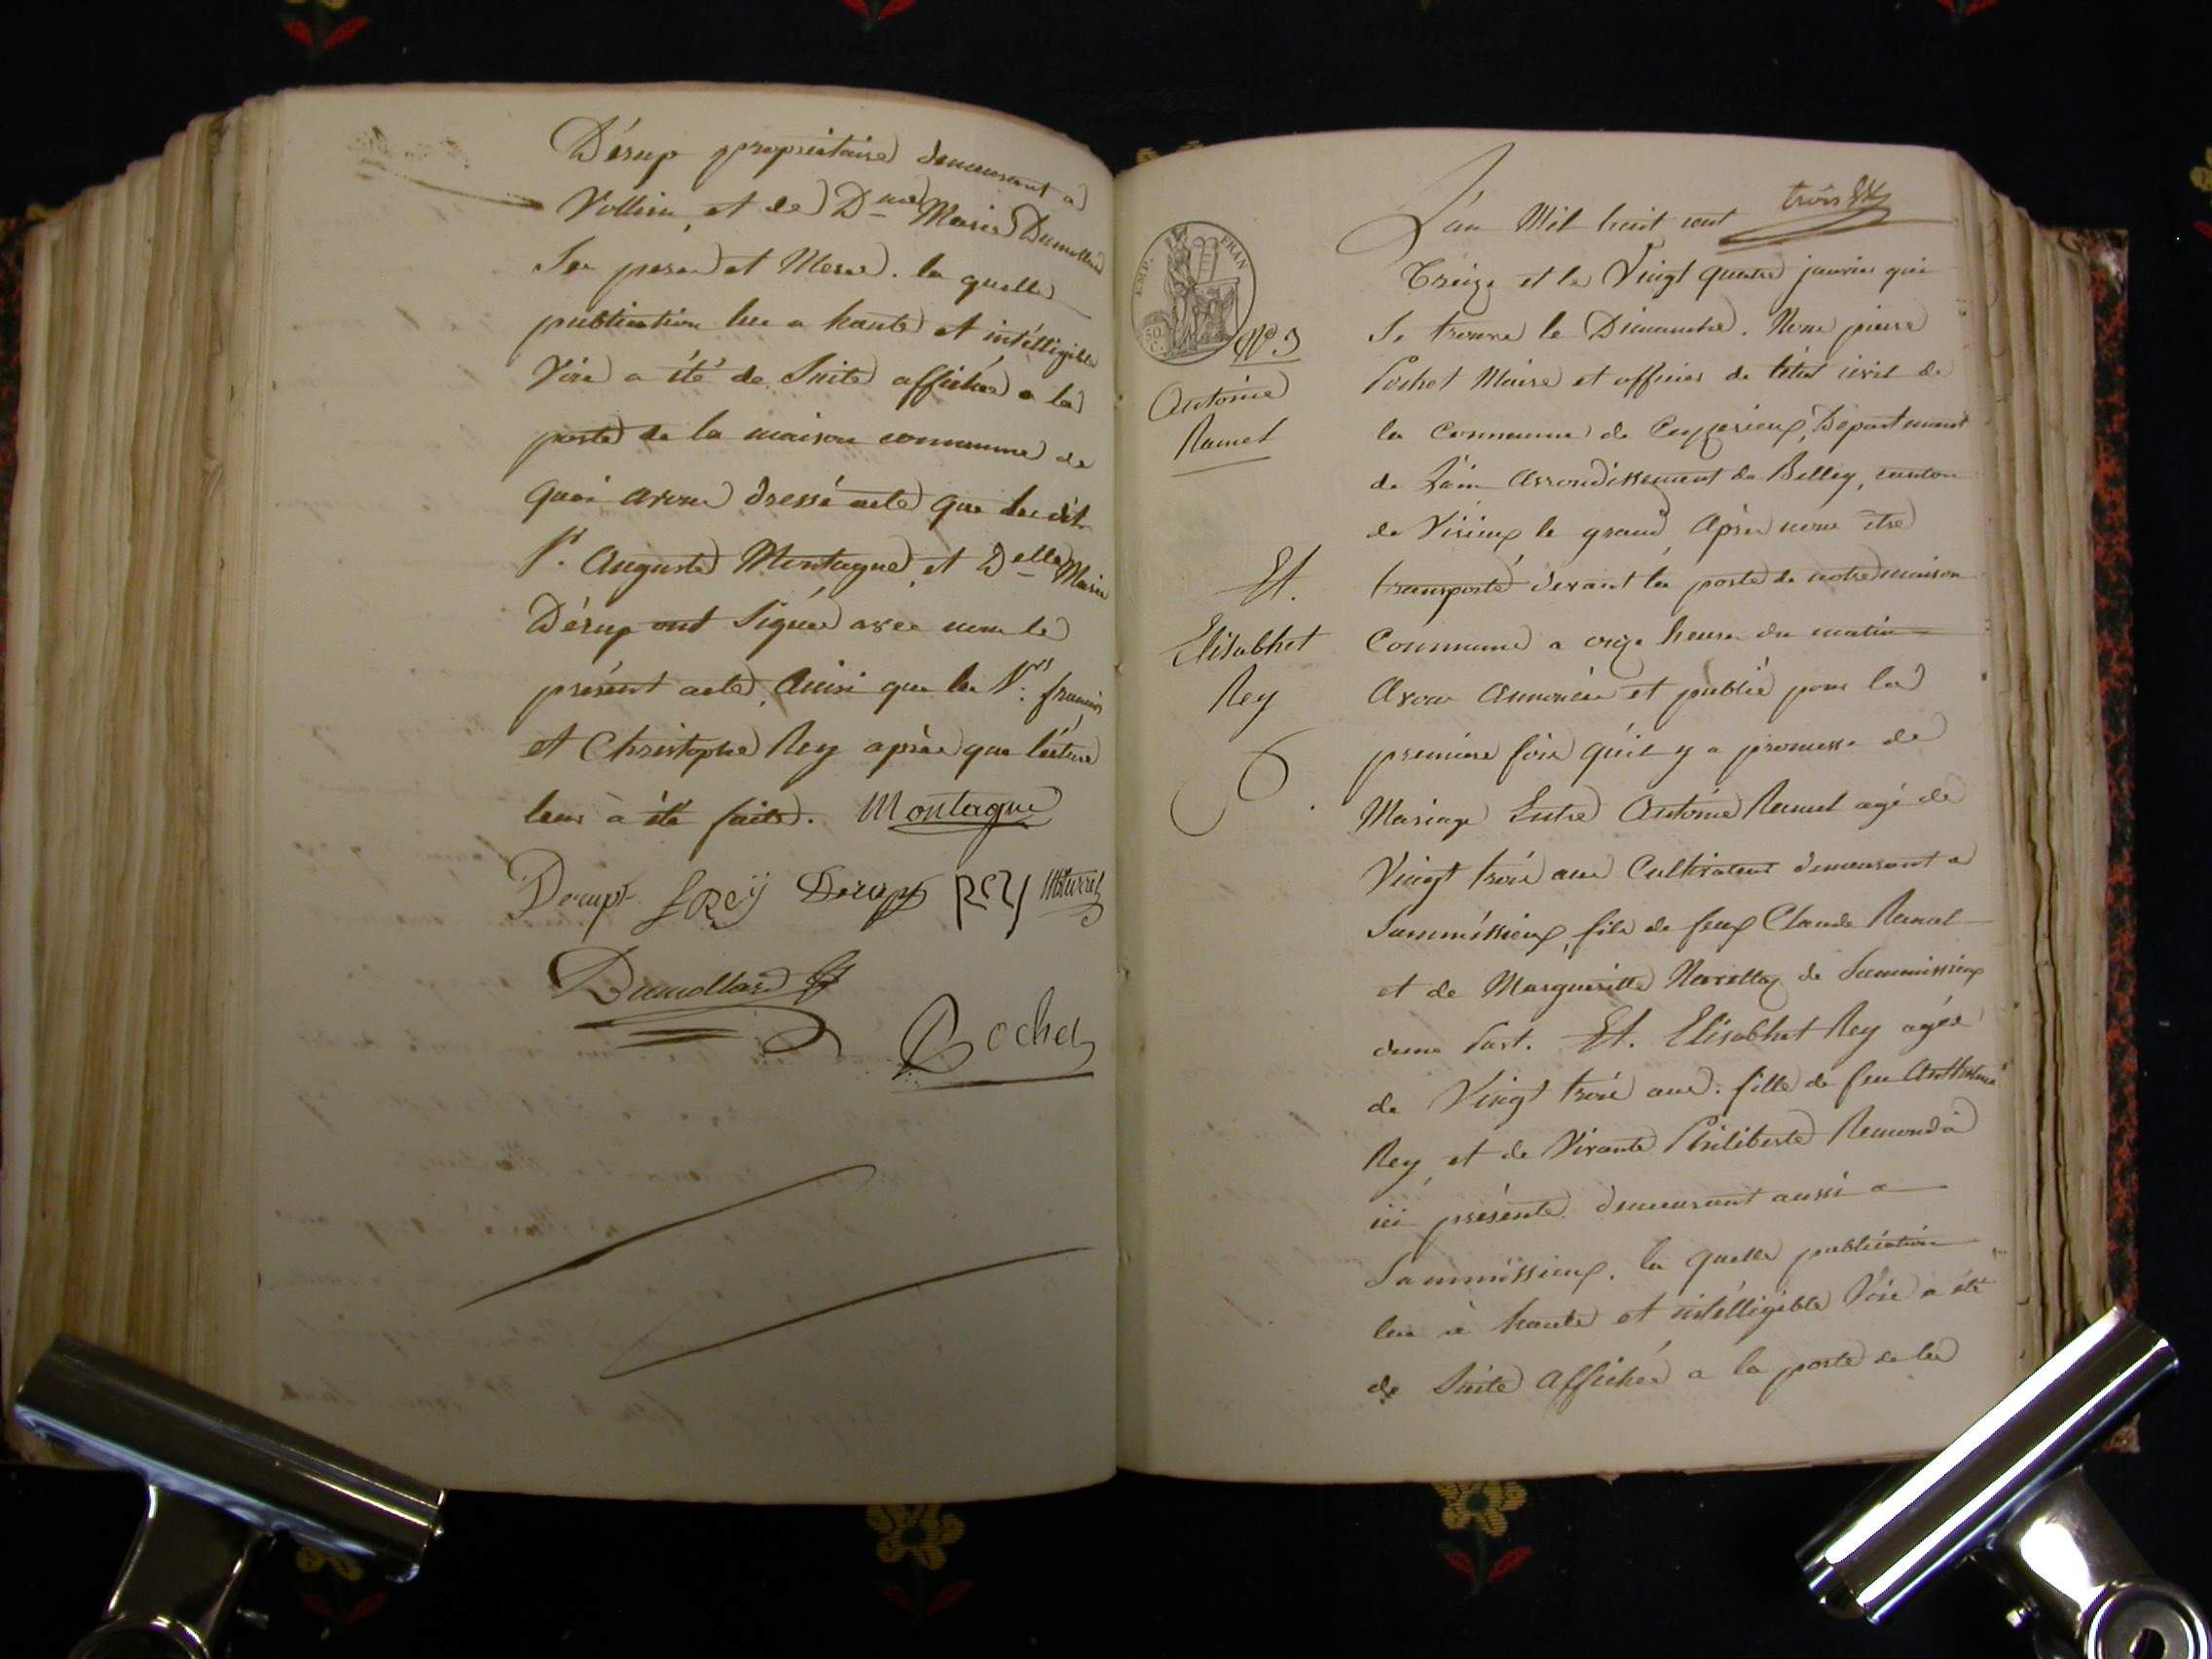 Dérup propriétaire demeurant a
Vollien, et de Dme Marie Dumollard
Ses perre et Mere. la quelle
publication lue a haute et intélligible
Voix a été de Suite affichée a la
porte de la maison commune de
quoi avons dressé acte que les dit
Sr. Auguste Montagne, et Delle Marie
Dérup ont Signée avec nous le
présent acte, Ainsi que les Srs: francois
et Christophe Rey après que lécture
leur à été faite. Montagne
Derupt f Rey Derupt Rey
Dumollard
Pochet
trois
L'an Mil huit cent
Treize et le Vingt quatre janvier qui
Se trouve le Dimanche. Nous pierre
Pochet Maire et officier de létat civil de
la Commune de Ceyzerieux, Département
de L'ain Arrondissement de Belley, canton
de Virieux le grand, Après nous être
transporté devant la porte de notre maison
Commune a onze heures du matin
Avons Annoncée et publié pour la
premiere fois qu'il y a promesse de
Mariage Entre Antoine Ramel agé de
Vingt trois ans Cultivateur demeurant a
Sammissieux, fils de feux Claude Ramel
et de Margueritte de Sammissieux
dune Part. Et. Elisabhet Rey agée
de Vingt trois ans. fille de feu Anthelme
Rey, et de Vivante Philiberte Remonda
ici présente demeurant aussi a
Sammissieux. la quelle publication
lue à haute et intélligible Voix a été
de Suite Affichée a la porte de la
EMP. FRAN
50 C.
No 3
Antoine
Ramel
Et.
Elisabhet
Rey